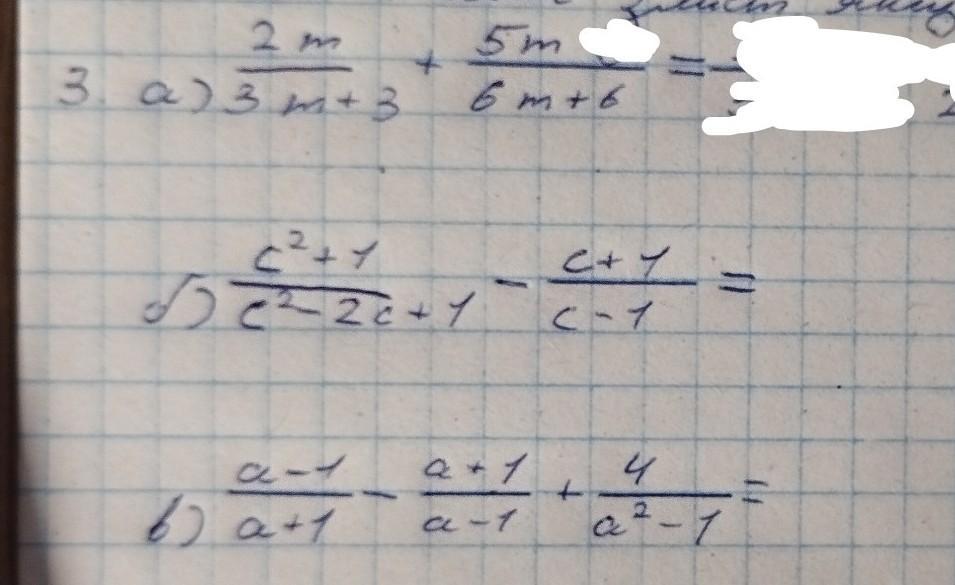 3. а) 2m/(3m+3) + 5m/(6m+6) =
б) (c²+1)/(c²-2c+1) - (c+1)/(c-1) =
в) (a-1)/(a+1) - (a+1)/(a-1) + 4/(a²-1) =